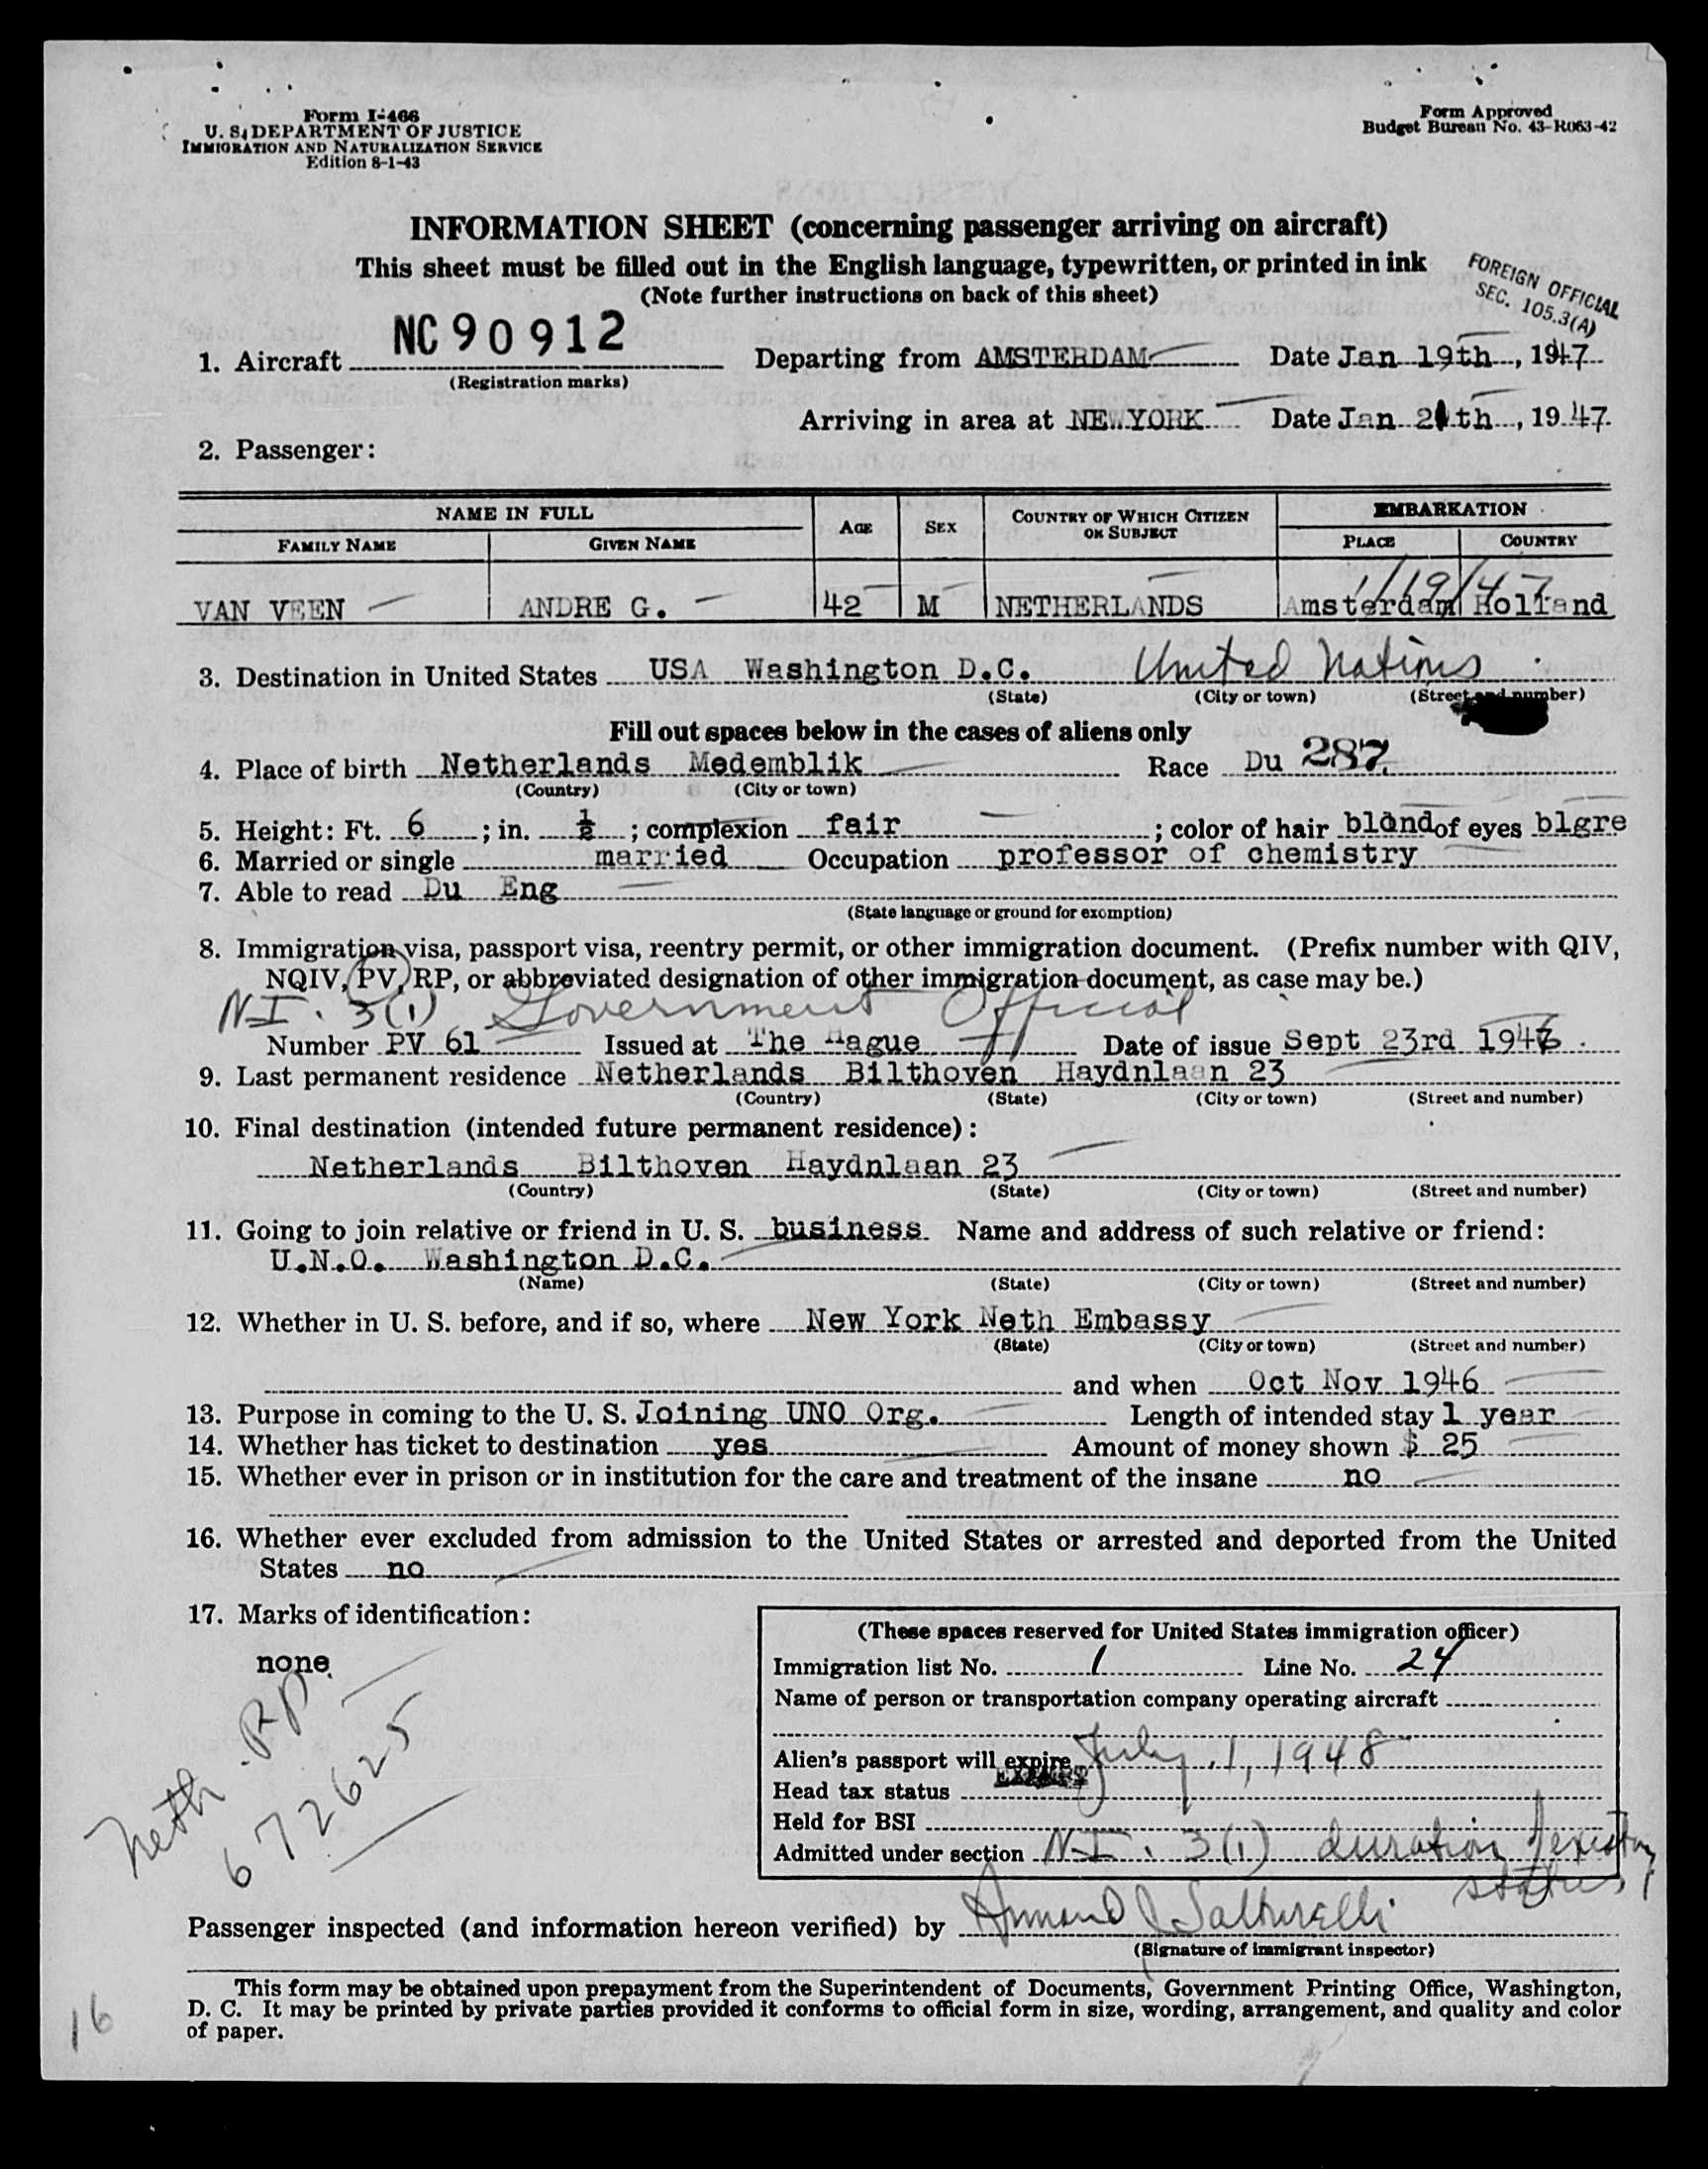 Form I-466
U. S. DEPARTMENT OF JUSTICE
IMMIGRATION AND NATURALIZATION SERVICE
Edition 8-1-43
Form Approved
Budget Bureau No. 43-R063-42
INFORMATION SHEET (concerning passenger arriving on aircraft)
This sheet must be filled out in the English language, typewritten, or printed in ink
(Note further instructions on back of this sheet)
FOREIGN OFFICIAL
SEC. 105.3(A)
1. Aircraft NC90912 Departing from AMSTERDAM Date Jan 19th, 1947
(Registration marks)
Arriving in area at NEW YORK Date Jan 2 th, 1947
2. Passenger:
NAME IN FULL AGE SEX COUNTRY OF WHICH CITIZEN OR SUBJECT EMBARKATION
FAMILY NAME GIVEN NAME PLACE COUNTRY
1/19/47
VAN VEEN ANDRE G. 42 M NETHERLANDS Amsterdam Holland
3. Destination in United States USA Washington D.C. United Nations
(State) (City or town) (Street and number)
Fill out spaces below in the cases of aliens only
4. Place of birth Netherlands Medemblik Race Du 287
(Country) (City or town)
5. Height: Ft. 6 ; in. ½ ; complexion fair ; color of hair blond of eyes blgre
6. Married or single married Occupation professor of chemistry
7. Able to read Du Eng
(State language or ground for exemption)
8. Immigration visa, passport visa, reentry permit, or other immigration document. (Prefix number with QIV,
NQIV, PV, RP, or abbreviated designation of other immigration document, as case may be.)
N.I. 3(1) Government Official
Number PV 61 Issued at The Hague Date of issue Sept 23rd 1946
9. Last permanent residence Netherlands Bilthoven Haydnlaan 23
(Country) (State) (City or town) (Street and number)
10. Final destination (intended future permanent residence):
Netherlands Bilthoven Haydnlaan 23
(Country) (State) (City or town) (Street and number)
11. Going to join relative or friend in U. S. business Name and address of such relative or friend:
U.N.O. Washington D.C.
(Name) (State) (City or town) (Street and number)
12. Whether in U. S. before, and if so, where New York Neth Embassy
(State) (City or town) (Street and number)
and when Oct Nov 1946
13. Purpose in coming to the U. S. Joining UNO Org. Length of intended stay 1 year
14. Whether has ticket to destination yes Amount of money shown $ 25
15. Whether ever in prison or in institution for the care and treatment of the insane no
16. Whether ever excluded from admission to the United States or arrested and deported from the United
States no
17. Marks of identification:
none
Neth. P.P.
672625
(These spaces reserved for United States immigration officer)
Immigration list No. 1 Line No. 24
Name of person or transportation company operating aircraft
Alien's passport will expire July 1, 1948
Head tax status
Held for BSI
Admitted under section N.I. 3(1) duration
status
Passenger inspected (and information hereon verified) by Armand J Salturelli
(Signature of immigrant inspector)
This form may be obtained upon prepayment from the Superintendent of Documents, Government Printing Office, Washington,
D. C. It may be printed by private parties provided it conforms to official form in size, wording, arrangement, and quality and color
of paper.
16